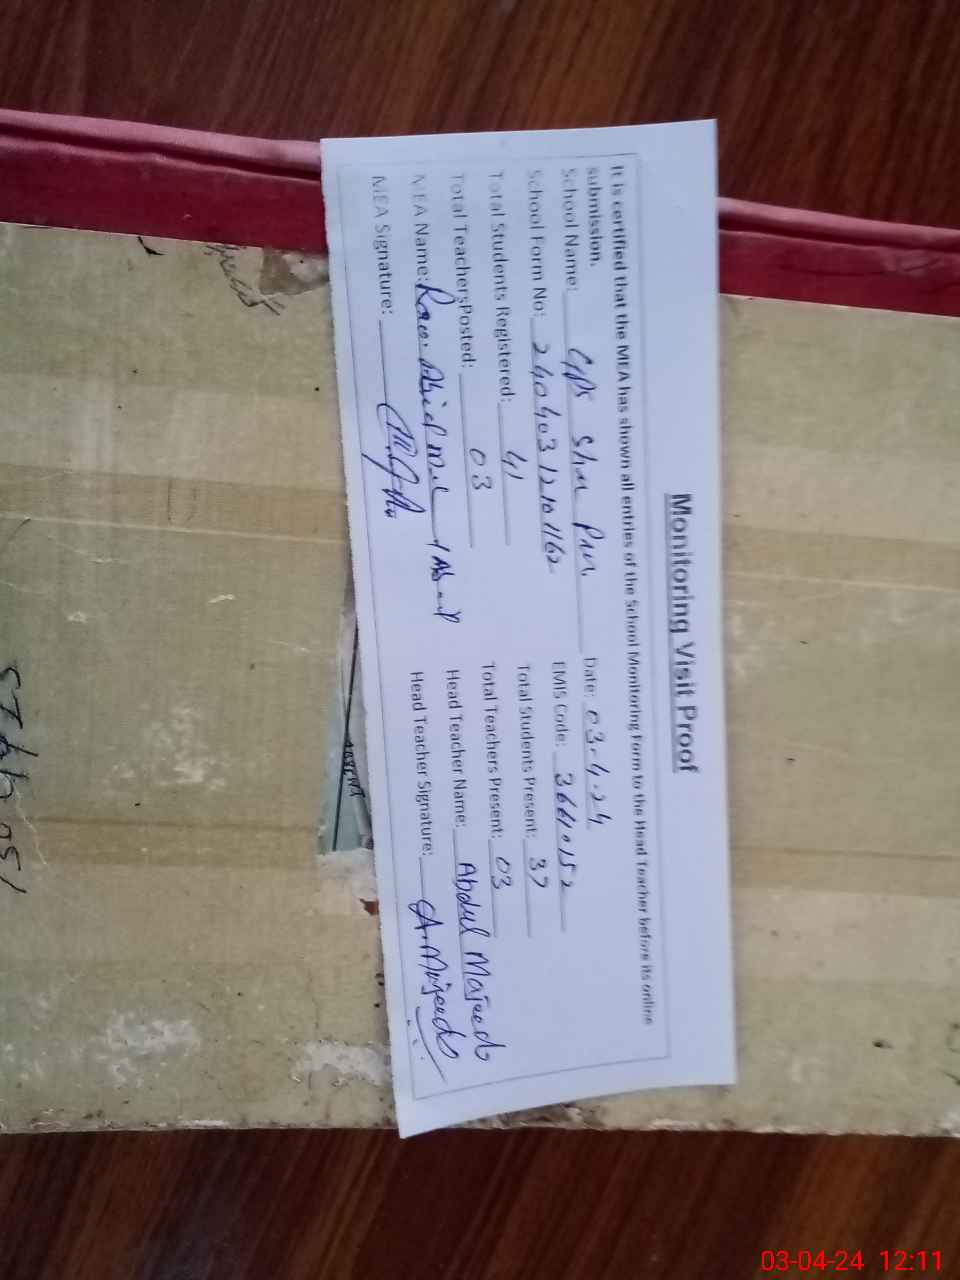 Monitoring Visit Proof
It is certified that the MEA has shown all entries of the School Monitoring Form to the Head Teacher before its online
submission.
School Name: GPS Sher Date: 03-4-24
School Form No: 24040312101162 EMIS Code: 36640152
Total Students Registered: 41 Total Students Present: 37
Total TeachersPosted: 03 Total Teachers Present: 03
MEA Name: Rao Head Teacher Name: Abdul Majeed
MEA Signature: Head Teacher Signature: A.Majeed
03-04-24 12:11